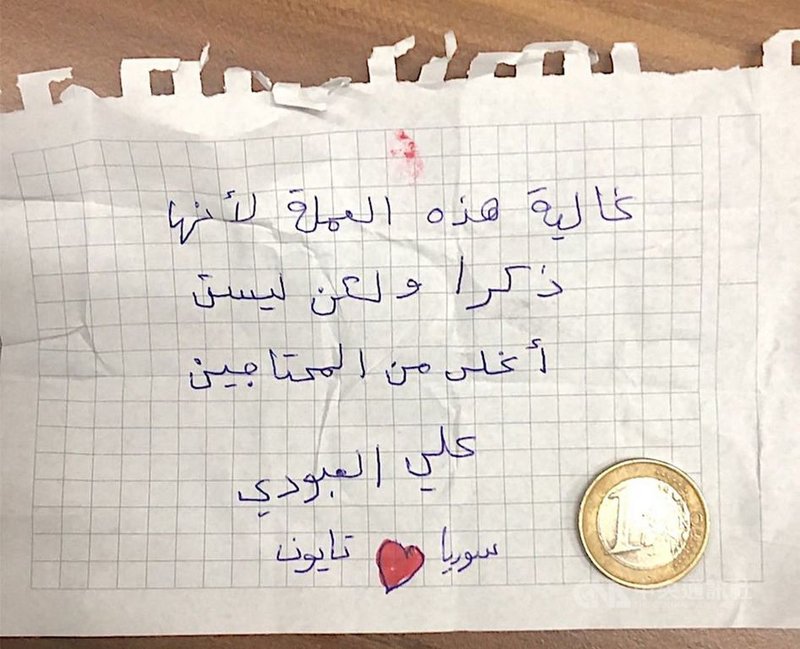 غالية هذه العملة لأنها
ذكرا ولكن ليست
أغلى من المحتاجين
علي العبودي
سوريا تايون
1